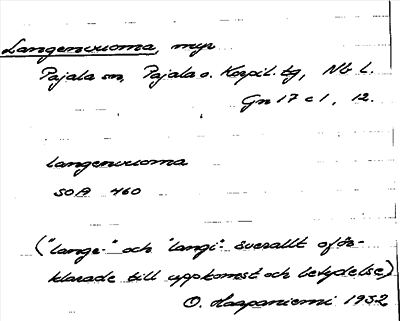 Langenvuoma, myr
Pajala sn, Pajala o. Korpil. tg, Nb l.
Gn 17 c 1, 12.
langenvuoma
SOA 460
("lange-" och "langi-" överallt oför-
klarade till uppkomst och betydelse)
O. Haapaniemi 1932